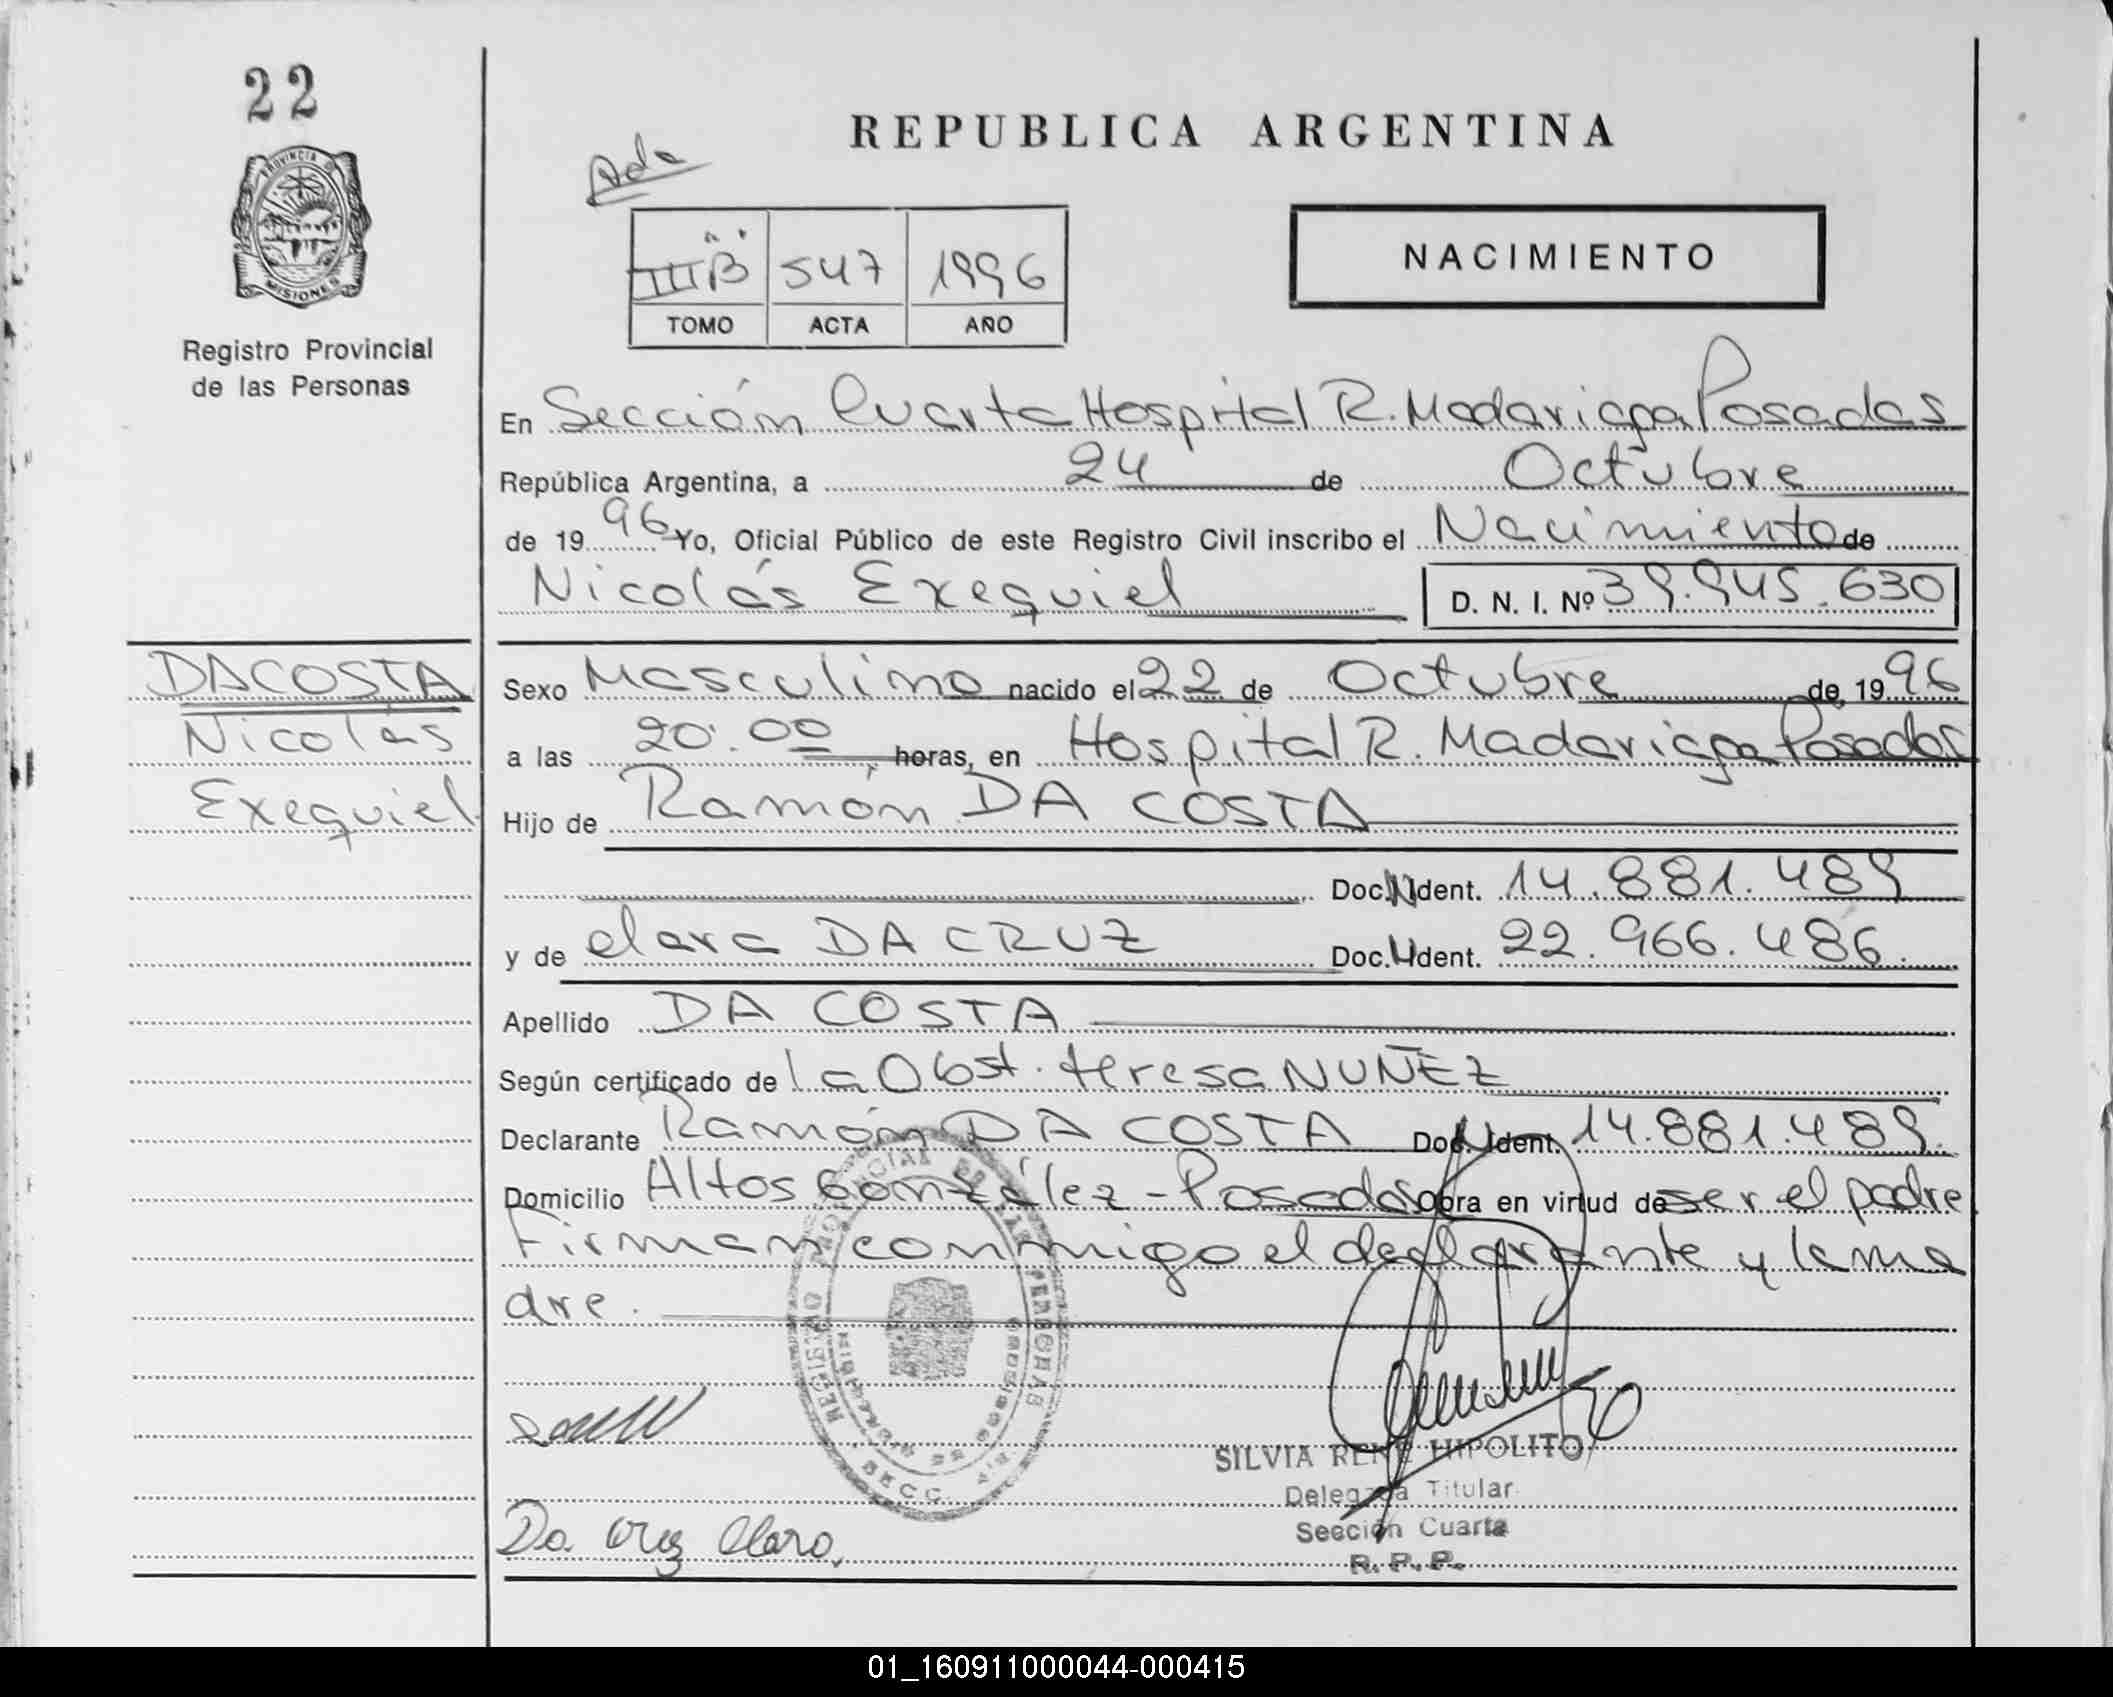 22
PROVINCIA DE
MISIONES
Registro Provincial
de las Personas
REPUBLICA ARGENTINA
III B 547 1996
TOMO ACTA AÑO
NACIMIENTO
En Sección Cuarta Hospital R. Madariaga Posadas
República Argentina, a 24 de Octubre
de 1996 Yo, Oficial Público de este Registro Civil inscribo el Nacimiento de
Nicolás Exequiel D. N. I. Nº 39.945.630
DA COSTA
Nicolás
Exequiel
Sexo Masculino nacido el 22 de Octubre de 1996
a las 20.00 horas, en Hospital R. Madariaga Posadas
Hijo de Ramón DA COSTA
Doc. N Ident. 14.881.489
y de Clara DA CRUZ Doc. N Ident. 22.966.486
Apellido DA COSTA
Según certificado de la Obst. teresa NUÑEZ
Declarante Ramón DA COSTA Doc. N Ident. 14.881.489
Domicilio Altos González - Posadas Obra en virtud de ser el padre
Firman conmigo el declarante y la ma
dre.
REGISTRO PROVINCIAL DE LAS PERSONAS
SECC.
SILVIA RENE HIPOLITO
Delegada Titular
Sección Cuarta
R. P. P.
Da Cruz Clara
01_160911000044-000415